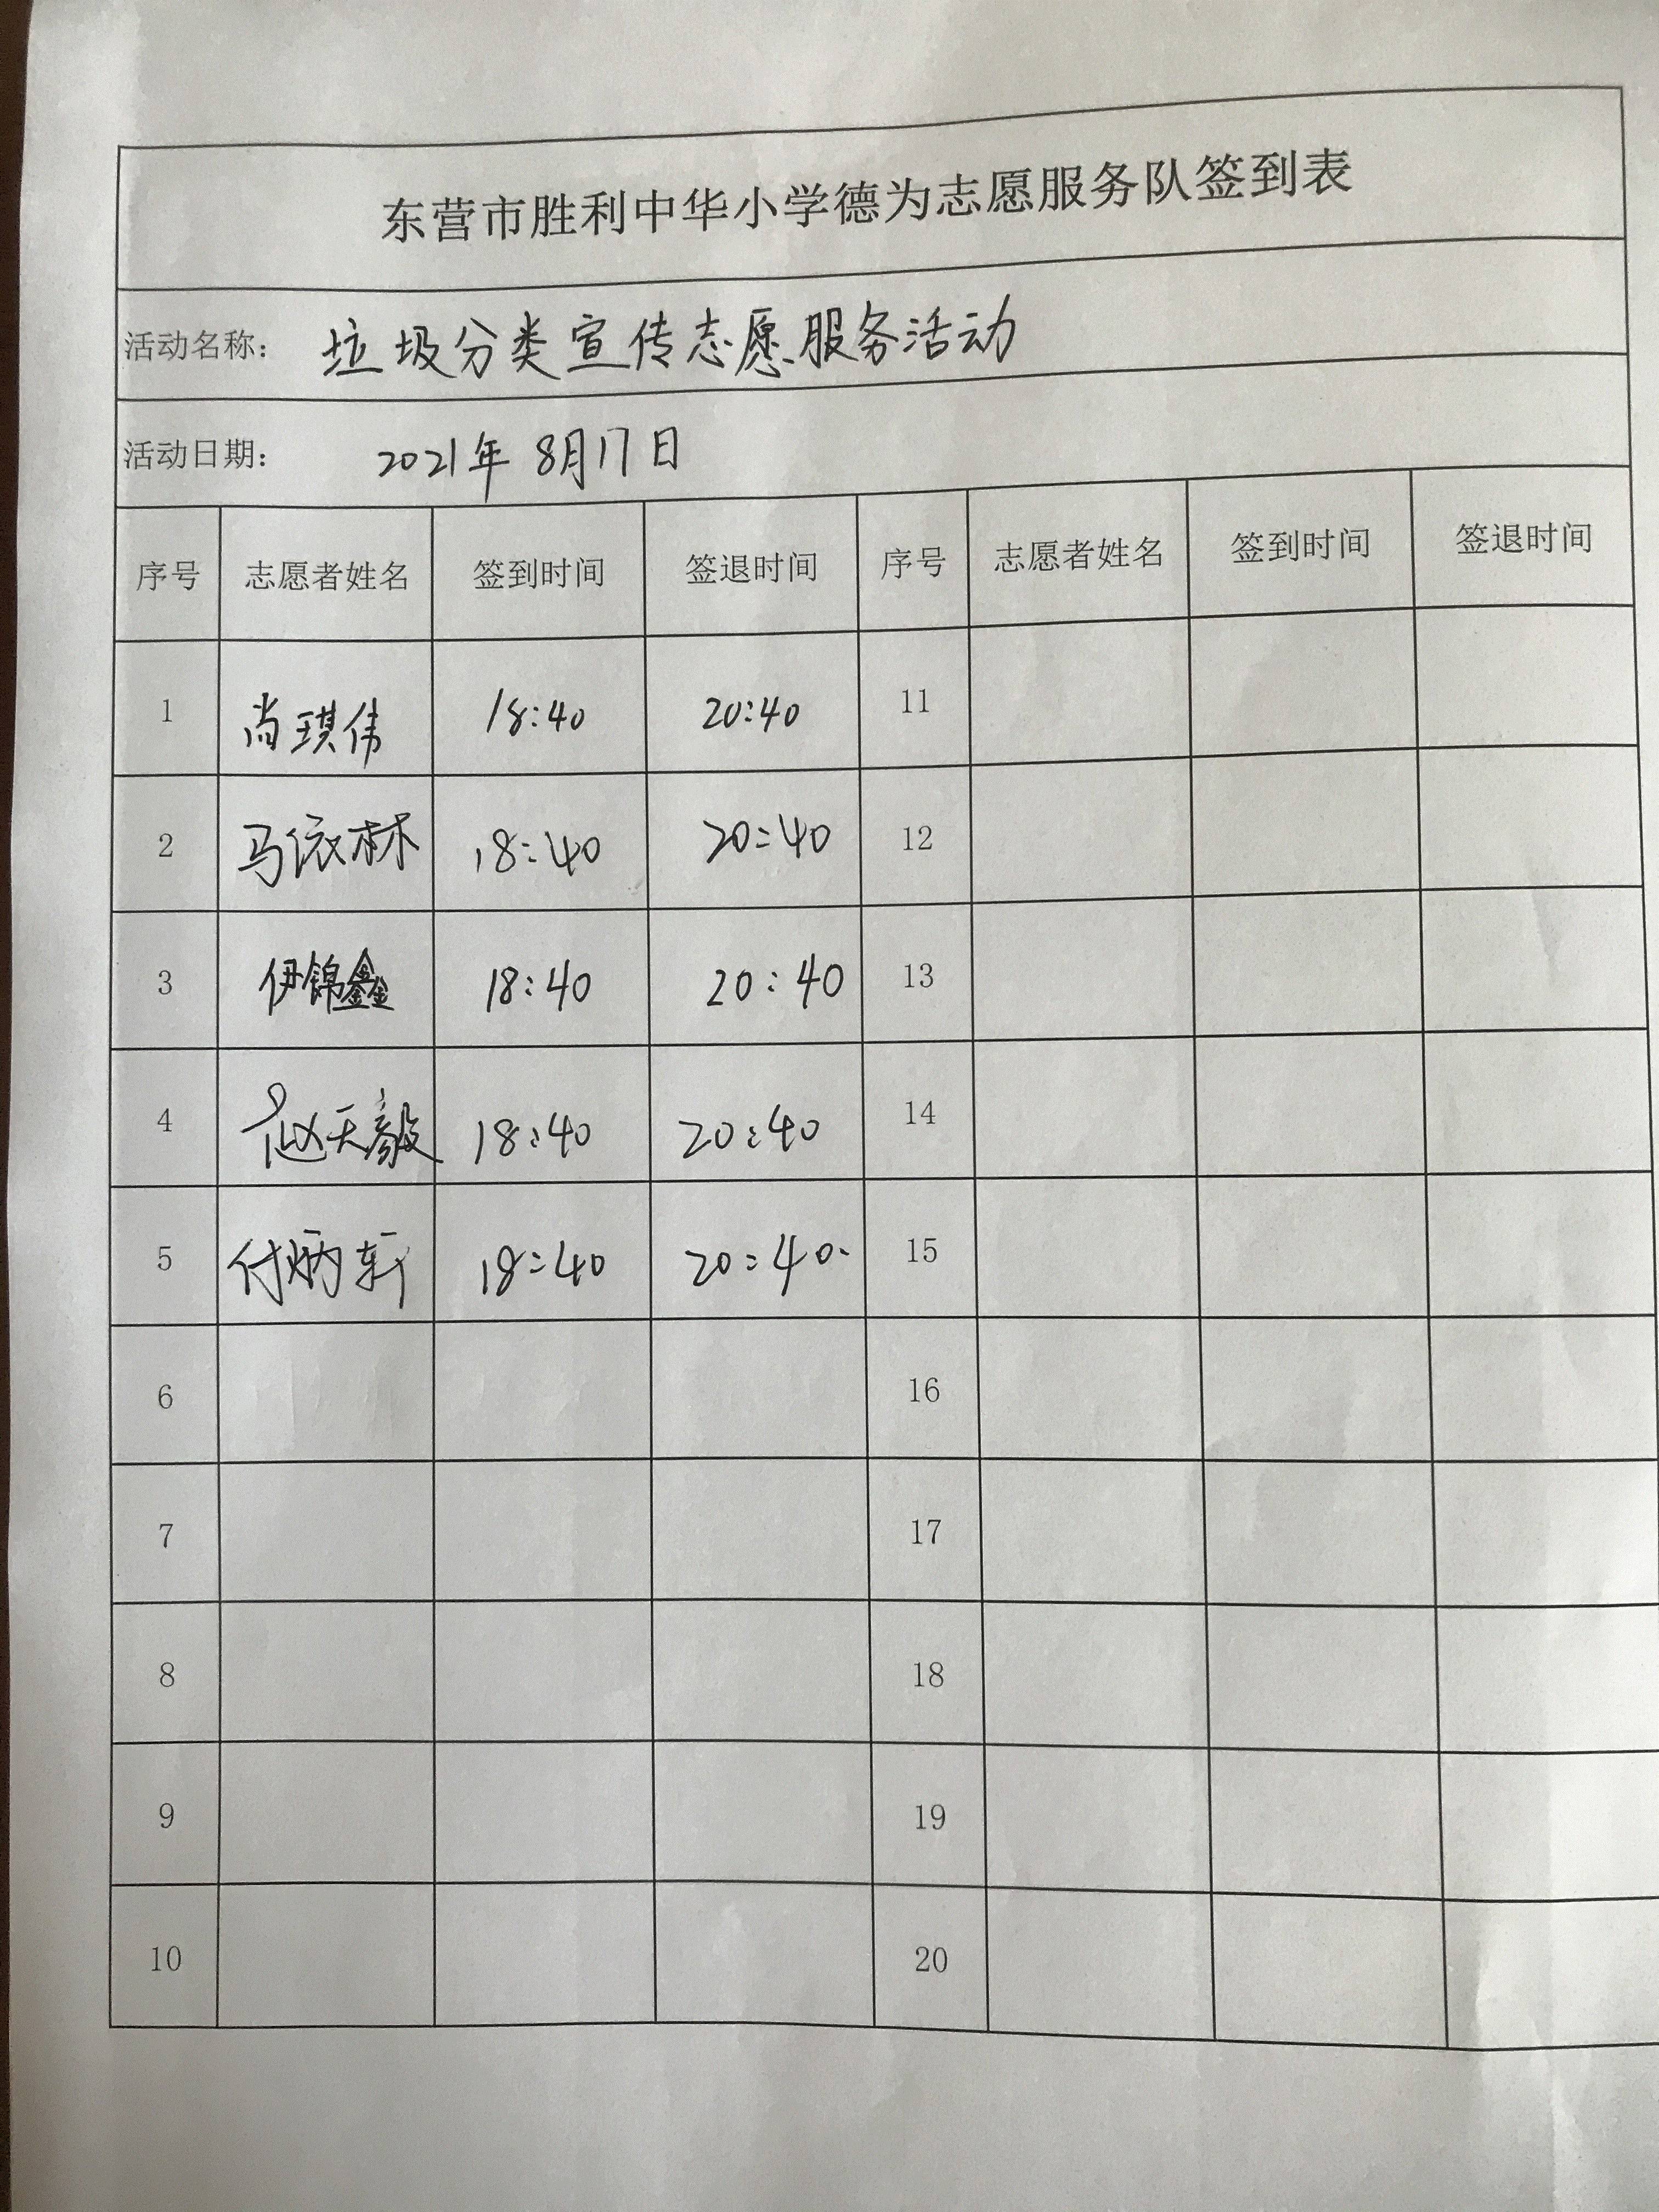 东营市胜利中华小学德为志愿服务队签到表
活动名称： 垃圾分类宣传志愿服务活动
活动日期： 2021年8月17日
序号 志愿者姓名 签到时间 签退时间 序号 志愿者姓名 签到时间 签退时间
1 尚琪伟 18:40 20:40 11
2 马依林 18:40 20:40 12
3 伊锦鑫 18:40 20:40 13
4 赵天毅 18:40 20:40 14
5 付炳轩 18:40 20:40. 15
6 16
7 17
8 18
9 19
10 20